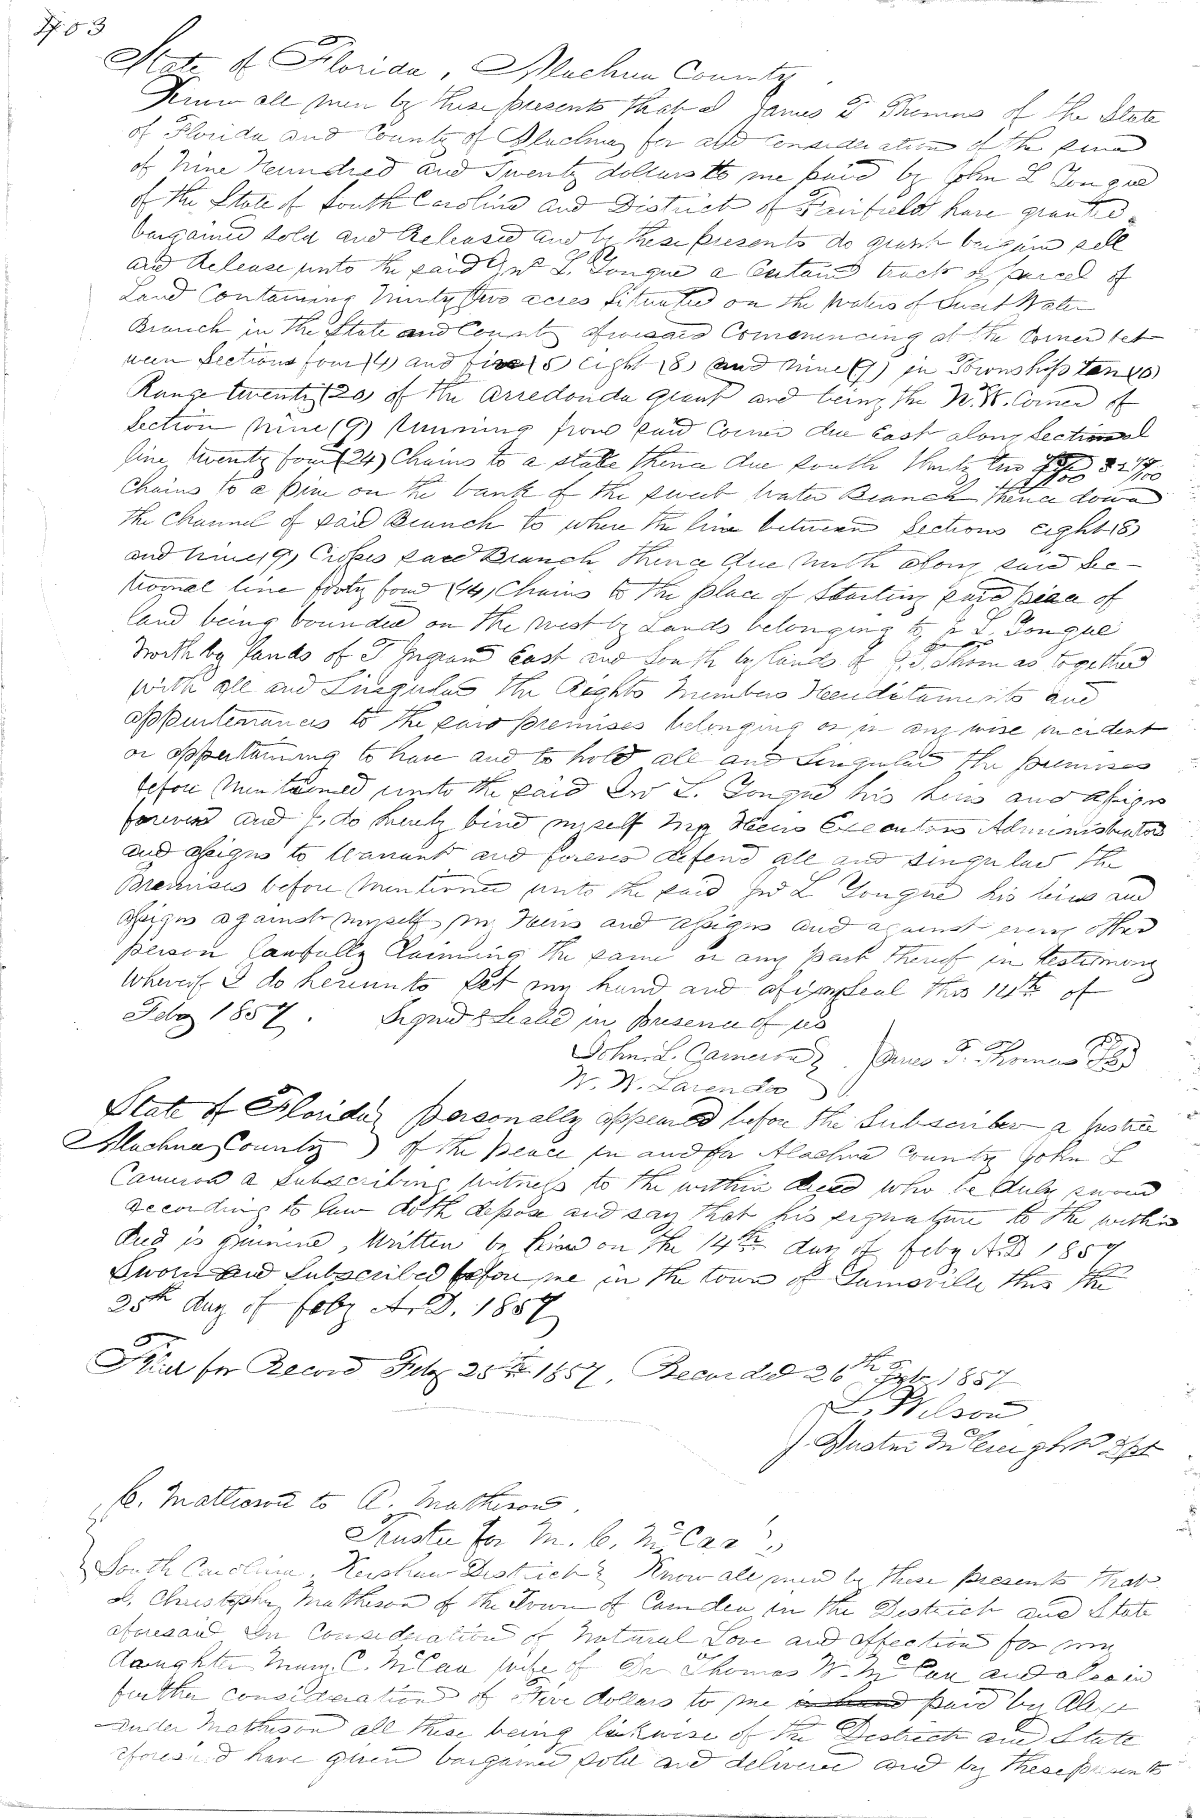 403
State of Florida, Alachua County.
Know all men by these presents that I James T Thomas of the State
of Florida and County of Alachua for and consideration of the sum
of Nine Hundred and Twenty dollars to me paid by John L Tongue
of the State of South Carolina and District of Fairfield have granted
bargained sold and Released and by these presents do grant bargain sell
and Release unto the said Jno L. Tongue a Certain tract of parcel of
Land Containing Ninety two acres Situated on the waters of Sweet Water
Branch in the State and County aforesaid Commencing at the Corner bet
ween Sections four (4) and five (5) eight (8) and nine (9) in Township ten (10)
Range twenty (20) of the arredonda grant and being the N.W. Corner of
Section Nine (9) Running from said Corner due East along Sectional
line twenty four (24) Chains to a stake thence due south thirty two 32
Chains to a pine on the bank of the sweet water Branch thence down
the Channel of said Branch to where the line between Sections eight (8)
and Nine (9) Crosses said Branch thence due North along said Sec-
tional line forty four (44) Chains to the place of Starting said piece of
land being bounded on the west by Lands belonging to J L. Tongue
North by lands of T Ingram East and South by lands of J. T. Thomas together
with all and Singular the Rights Members Hereditaments and
appurtenances to the said premises belonging or in any wise incident
or appertaining to have and to hold all and Singular the premises
before Mentioned unto the said Jno L. Tongue his heirs and assigns
forever and I do hereby bind myself My Heirs Executors Administrators
and assigns to Warrant and forever defend all and singular the
Premises before Mentioned unto the said Jno L Tongue his heirs and
assigns against myself my Heirs and assigns and against every other
person lawfully Claiming the same or any part thereof in testimony
Whereof I do hereunto Set my hand and affix my Seal this 14th of
Feby 1857. Signed & Sealed in presence of us
John L. Cameron } James T. Thomas
W. W. }
State of Florida } personally appeared before the Subscriber a Justice
Alachua County ) of the peace in and for Alachua County John L
Cameron a Subscribing witness to the within deed who be duly sworn
according to law doth depose and say that his signature to the within
deed is genuine, Written by him on the 14th day of feby A.D 1857
Sworn and Subscribed before me in the town of Gainsville this the
25th day of feby A.D. 1857
Filed for Record Feby 25th 1857. Recorded 26th Feby 1857
L. Wilson
C. Matheson to A. Matheson.
Trustee for M. C. McCaa
South Carolina, Kershaw District } Know all men by these presents that
I. Christopher Matheson of the Town of Camden in the District and State
aforesaid In Consideration of Natural Love and affection for my
daughter Mary C. McCaa wife of Dr Thomas W. McCaa and also in
further consideration of Five dollars to me in hand paid by Alex
ander Matheson all these being likewise of the District and State
aforesaid have given bargained sold and delivered and by these presents